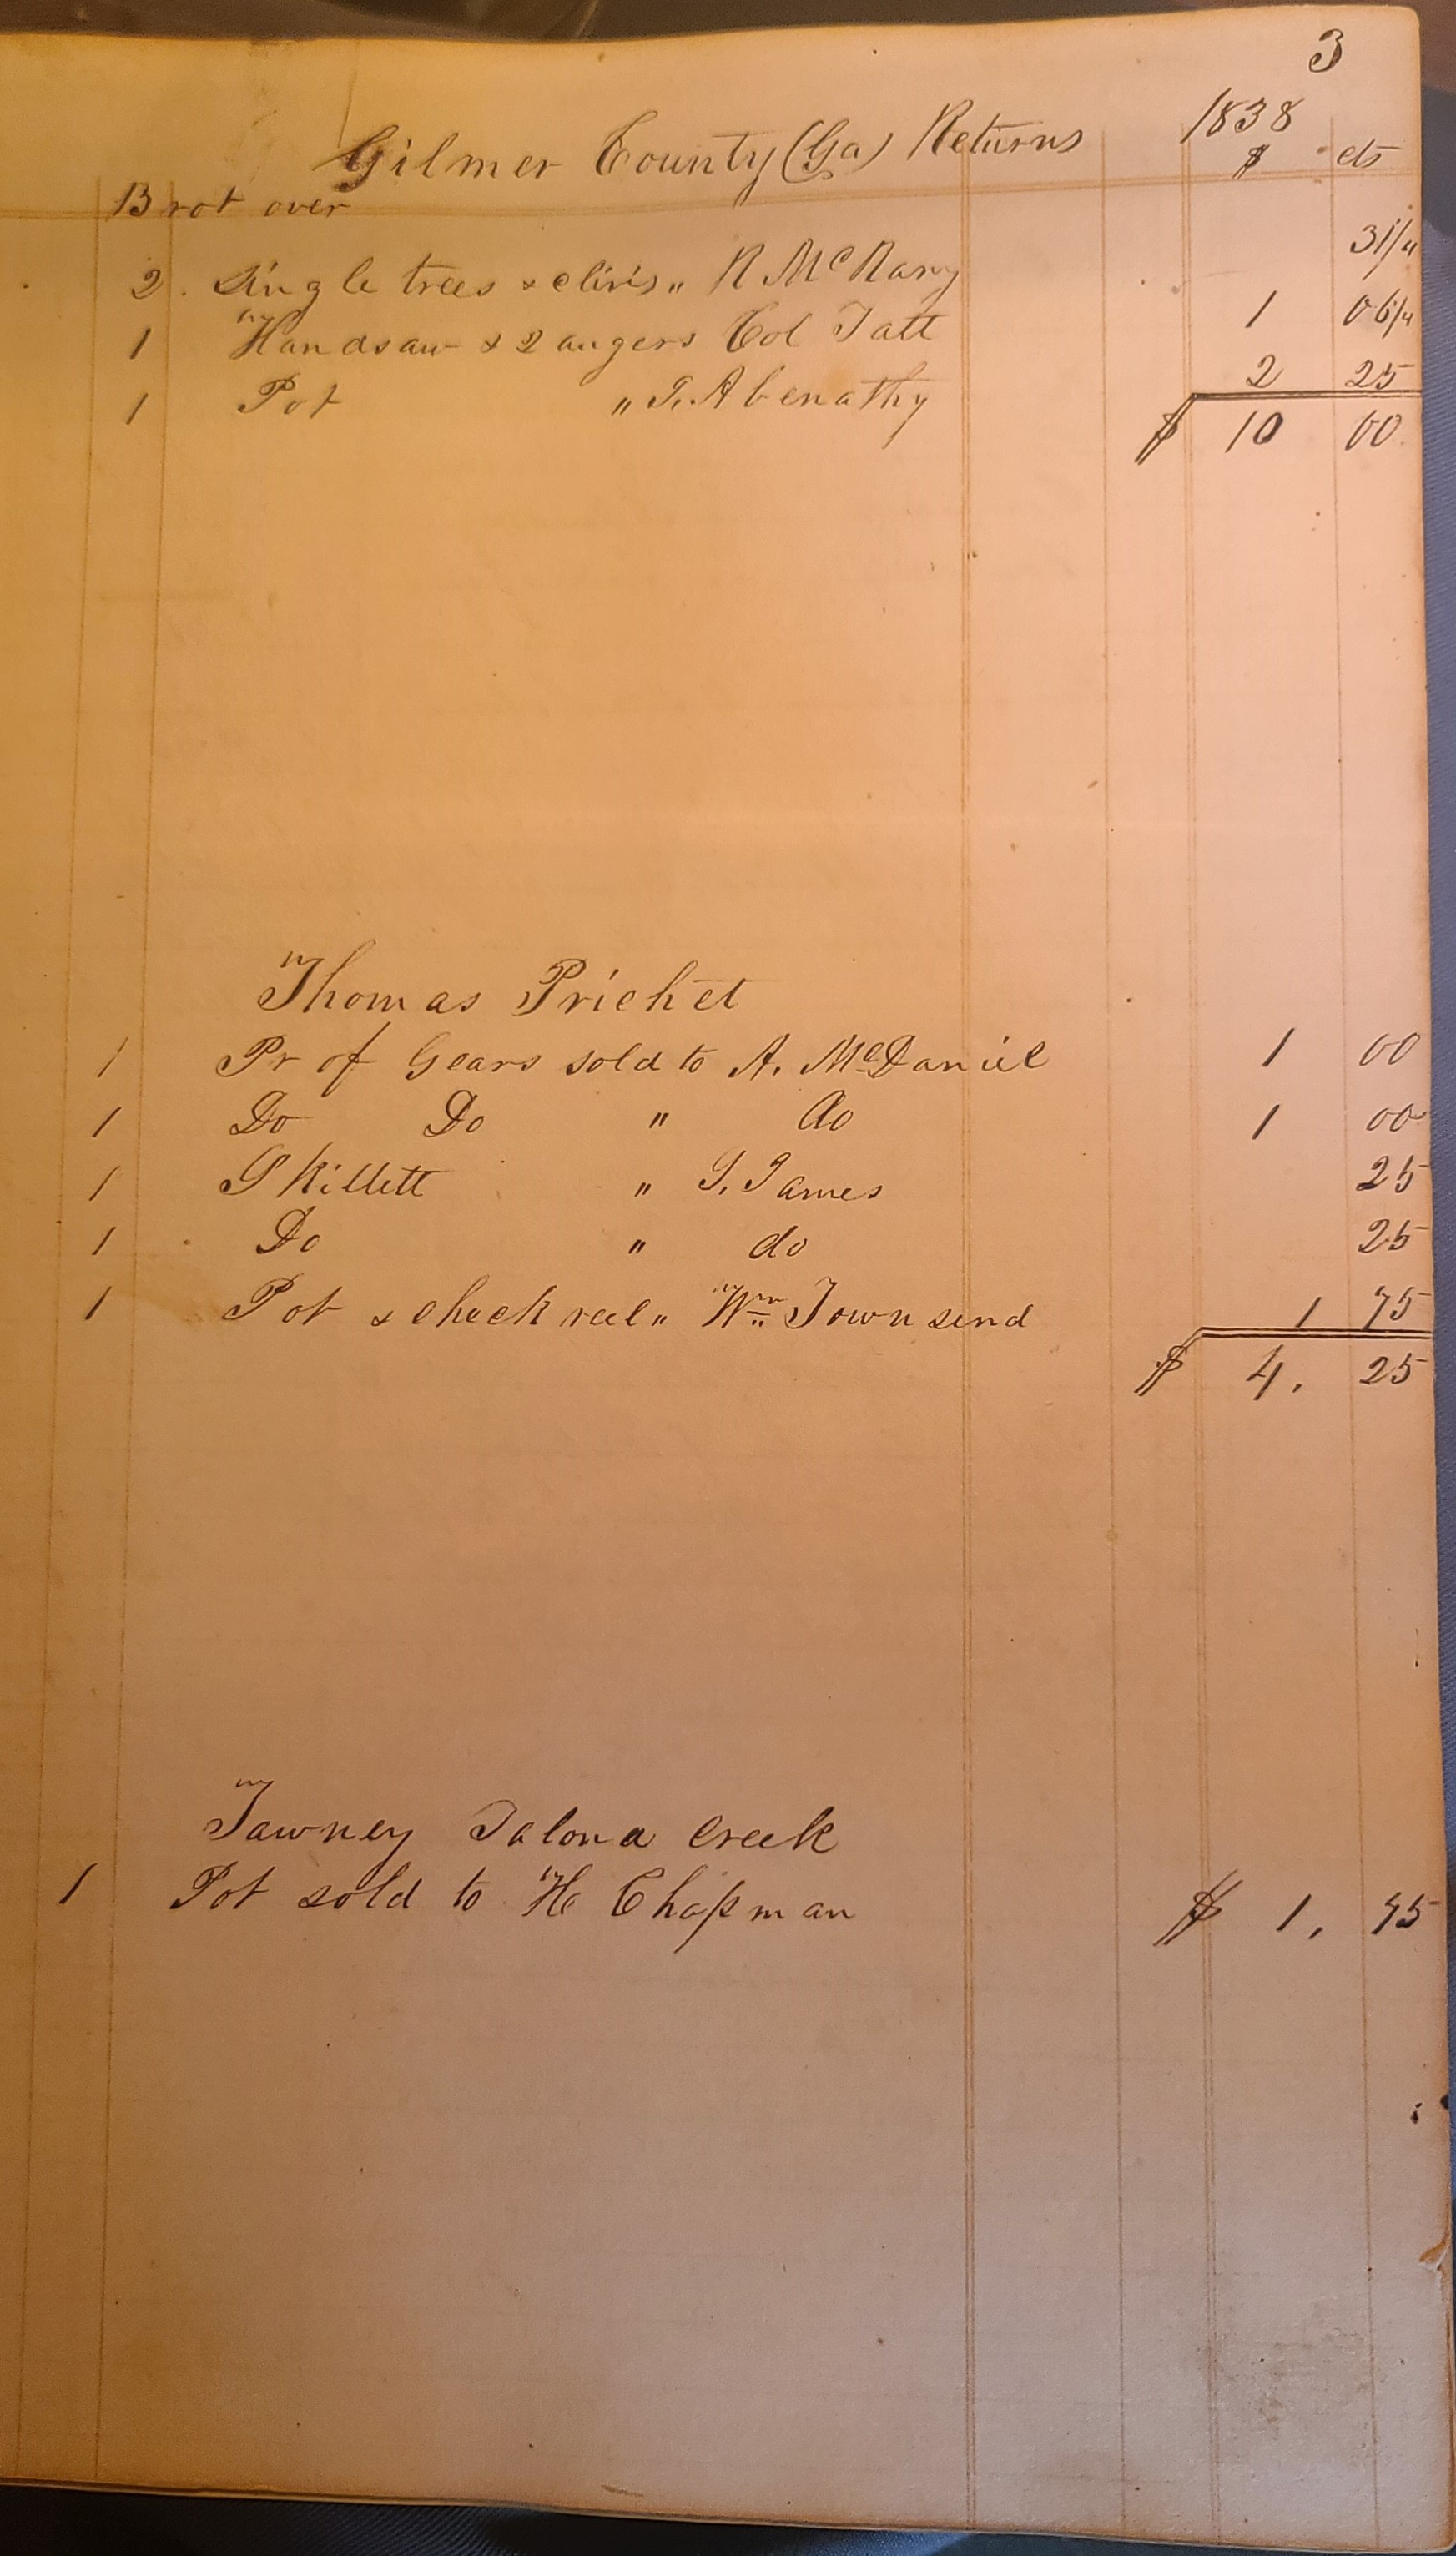 3
Gilmer County (Ga) Returns 1838
$ cts
Brot over
2 Single trees & clivis " R McNary 31¼
1 Handsaw & 2 augers Col Tatt 1 06¼
1 Pot " T. Abenathy 2 25
$ 10 00
Thomas Prichet
1 Pr of Gears sold to A. McDaniel 1 00
1 Do Do " do 1 00
1 Skillett " S. James 25
1 Do " do 25
1 Pot & check reel " Wm Townsend 1 75
$ 4. 25
Tawney Talona Creek
1 Pot sold to H Chapman $ 1. 75